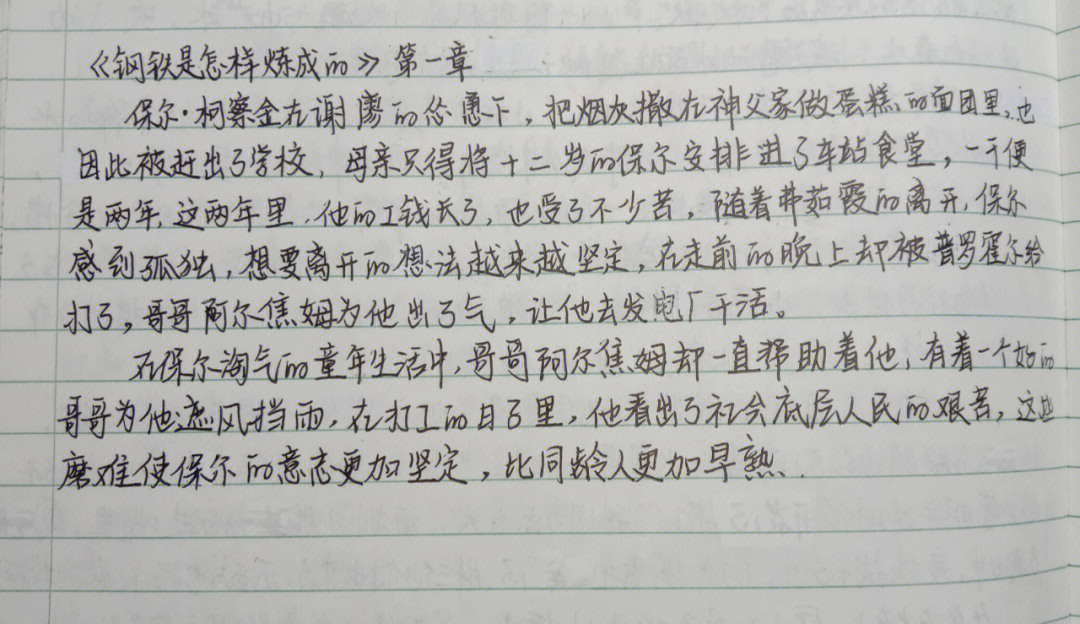 《钢铁是怎样炼成的》第一章
保尔·柯察金在谢廖的怂恿下，把烟灰撒在神父家做蛋糕的面团里，也
因此被赶出了学校，母亲只得将十二岁的保尔安排进了车站食堂，一干便
是两年，这两年里，他的工钱长了，也受了不少苦，随着弗茹霞的离开，保尔
感到孤独，想要离开的想法越来越坚定，在走前的晚上却被普罗霍尔给
打了。哥哥阿尔焦姆为他出了气，让他去发电厂干活。
在保尔淘气的童年生活中，哥哥阿尔焦姆却一直帮助着他，有着一个好的
哥哥为他遮风挡雨，在打工的日子里，他看出了社会底层人民的艰苦，这些
磨难使保尔的意志更加坚定，比同龄人更加早熟.